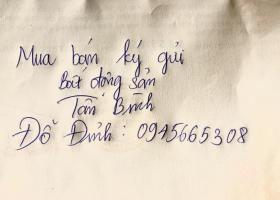 Mua bán ký gửi
bất động sản
Tân Bình
Đỗ Đình : 0945665308